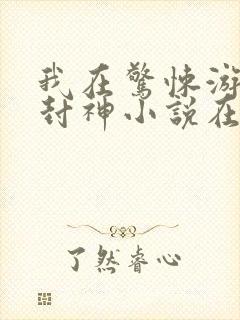 我在驚悚游
封神小説在
了然睿心